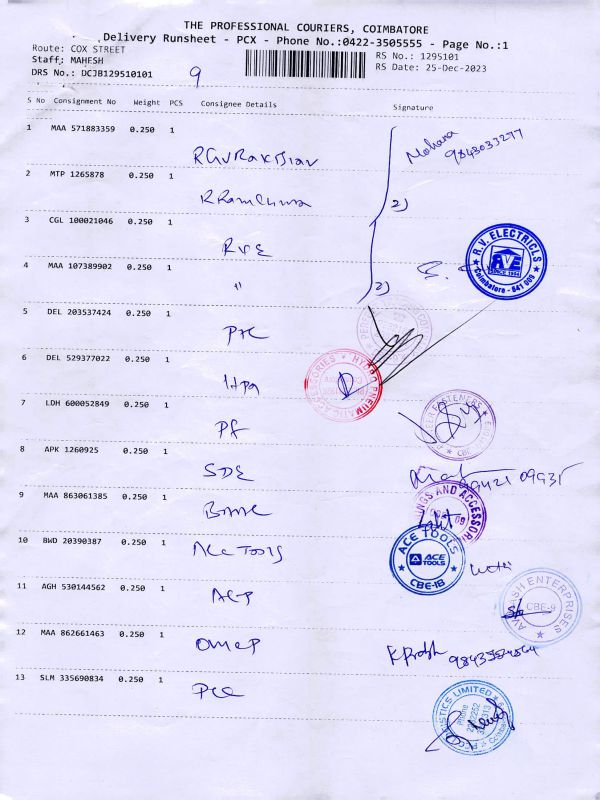 THE PROFESSIONAL COURIERS, COIMBATORE
Delivery Runsheet - PCX - Phone No.:0422-3505555 - Page No.:1
Route: COX STREET
RS No.: 1295101
Staff: MAHESH
RS Date: 25-Dec-2023
DRS No.: DCJB129510101
9
S No Consignment No Weight PCS Consignee Details Signature
1 MAA 571883359 0.250 1
Mohana
9843033277
2 MTP 1265878 0.250 1
2)
3 CGL 100021046 0.250 1
RVE
R.V. ELECTRICLS
RVE
SINCE 1994
Coimbatore - 641 009
4 MAA 107389902 0.250 1
"
2)
5 DEL 203537424 0.250 1
6 DEL 529377022 0.250 1
Hpa
HYDRO PNEUMATIC ACCESSORIES
7 LDH 600052849 0.250 1
PF
FASTENERS
8 APK 1260925 0.250 1
SDE
09935
9 MAA 863061385 0.250 1
INGS AND ACCESSORI
10 BWD 20390387 0.250 1
Ace Tools
ACE TOOLS
ACE
TOOLS
CBE-18
11 AGH 530144562 0.250 1
AEP
AVINASH ENTERPRISES
CBE-9
12 MAA 862661463 0.250 1
13 SLM 335690834 0.250 1
PCC
ISTICS LIMITED
Phone